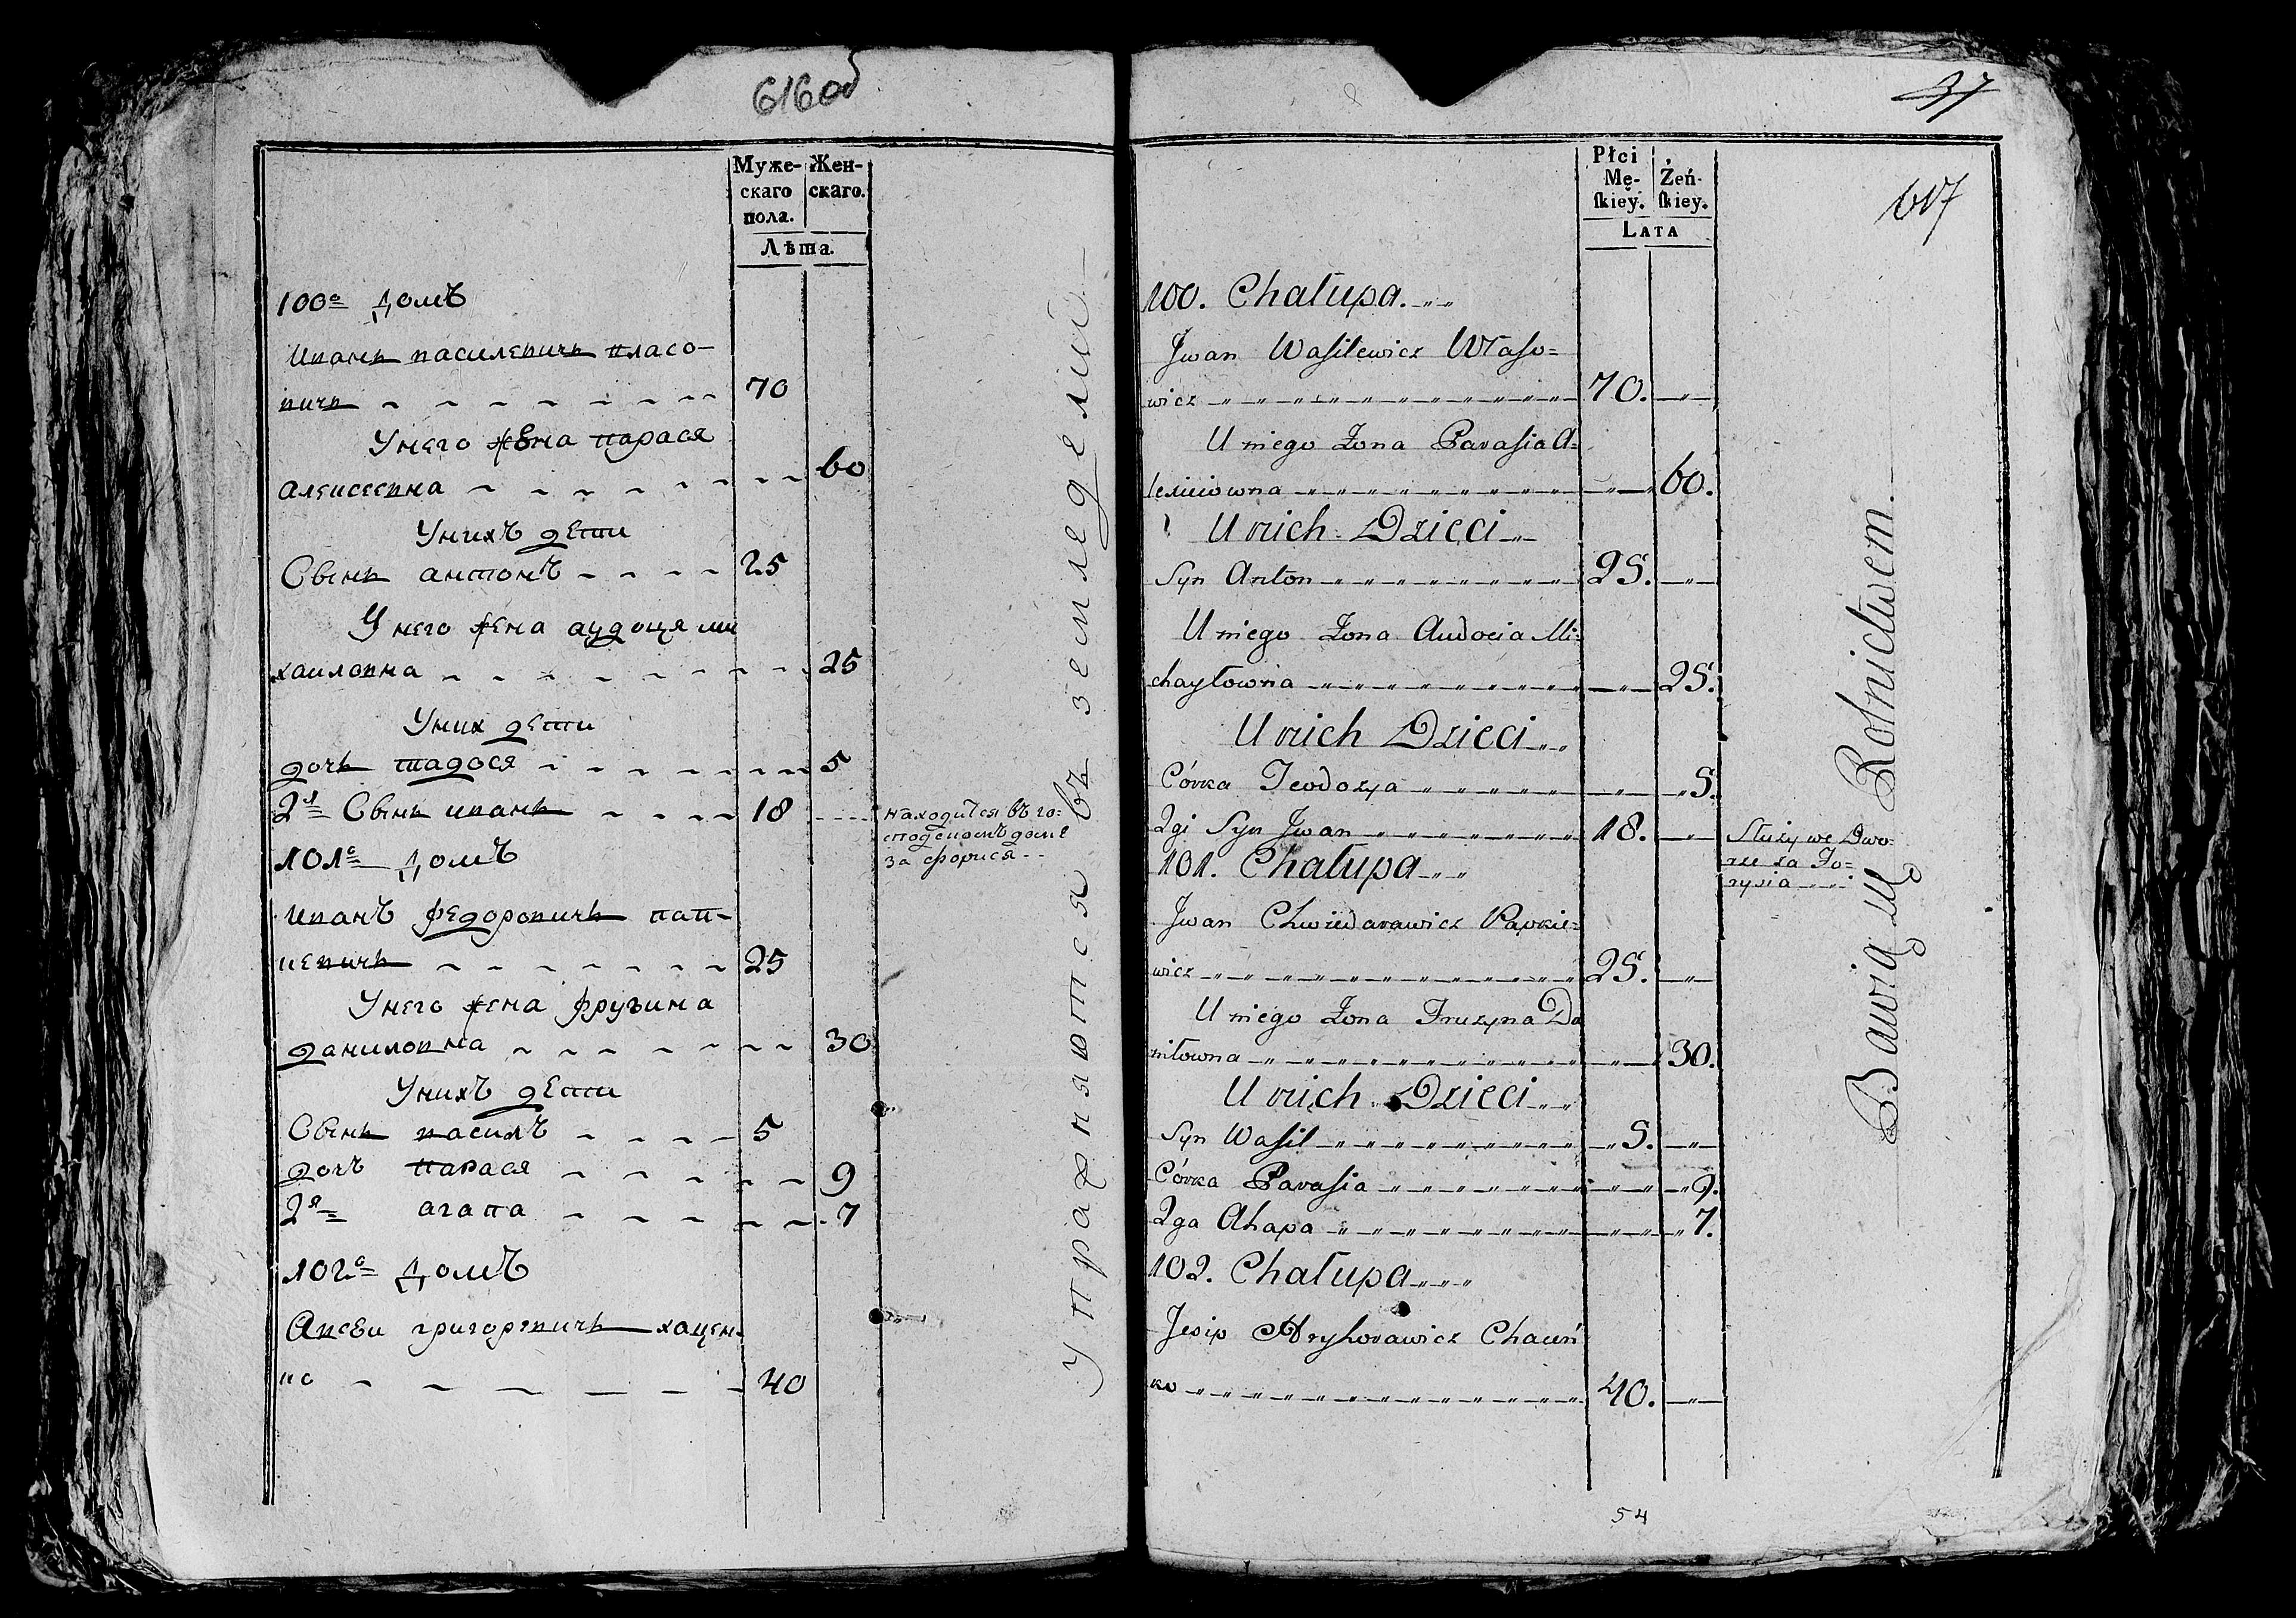 616об
Муже-
скаго
пола.
Жен-
скаго.
Лѣта.
100е домъ
Иванъ василевичь власо-
вичь 70
Унего жена парася
алексеевна 60
Унихъ дети
Сынъ антонъ 25
Унего жена аудоця ми
хаиловна 25
Уних дети
дочь тадося 5
2й Сынъ иванъ 18
находится въ го-
сподскомъ доме
за форися
101е домъ
иванъ федоровичь пап-
кевичь 25
Унего жена фружина
даниловна 30
Унихъ дети
Сынъ василъ 5
дочъ парася 9
2я агапа 7
102е домъ
григоревичь хацен-
ко 40
Упражняются въ земледелии
37
617
Płci
Mę-
skiey.
Żeń-
skiey.
Lata
100. Chałupa.
Jwan Wasilewicz Własо=
wicz 70.
U niego Żona Parasia A=
lexiiowna 60.
U nich Dzieci
Syn Anton 25.
U niego Żona Audocia Mi=
chayłowna 25.
U nich Dzieci
Córka Teodozya 5.
2gi Syn Jwan 18.
Służy we Dwo=
rze za Fo=
rysia
101. Chałupa
Jwan Chwiedarawicz Papkie=
wicz 25.
U niego Żona Fruzyna Da
niłowna 30.
U nich Dzieci
Syn Wasil 5.
Córka Parasia 9.
2ga Ahapa 7.
102. Chałupa
Jesip Hryhorawicz Chaceń
ko 40.
Bawią się Rolnictwem.
54